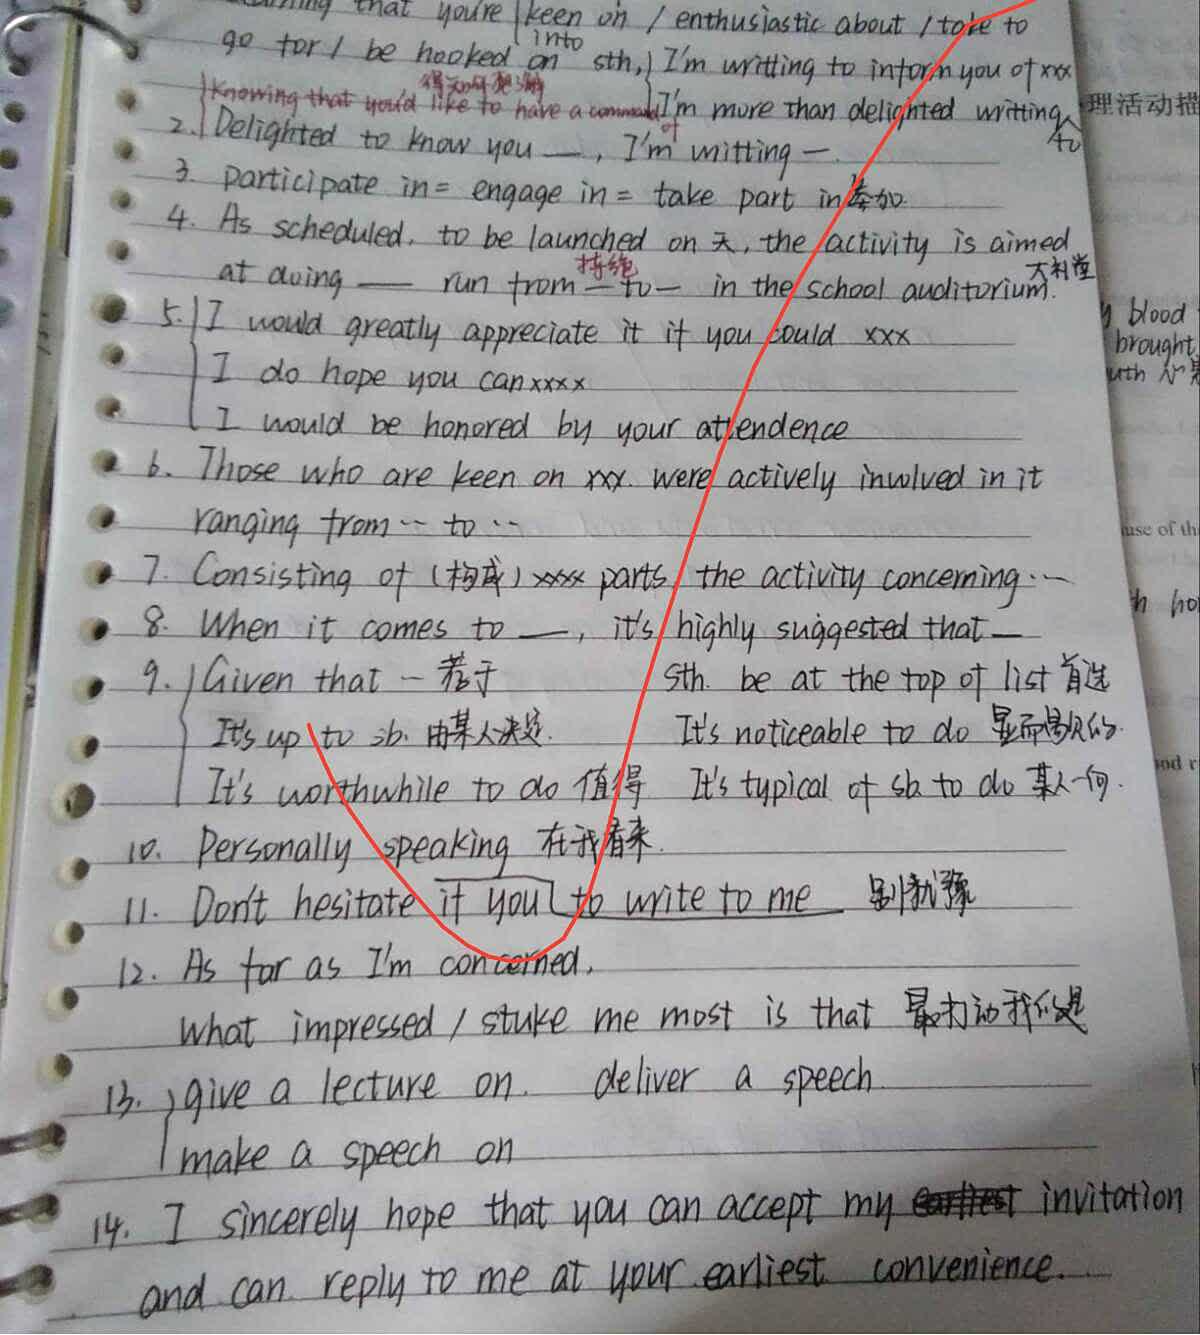 that you're keen on / enthusiastic about / take to
go for / be hooked on into sth, I'm writting to inform you of xxx
得知你想潮
Knowing that you'd like to have a command of I'm more than delighted writting to
2. Delighted to know you —, I'm writting —.
3. participate in = engage in = take part in 参加
4. As scheduled, to be launched on 天, the activity is aimed
at doing — run from — to — 持续 in the school auditorium. 大礼堂
5. I would greatly appreciate it if you could xxx
I do hope you can xxxx
I would be honored by your attendence
6. Those who are keen on xxx. were actively involved in it
ranging from ... to ...
7. Consisting of (构成) xxxx parts, the activity concerning ...
8. When it comes to —, it's highly suggested that —
9. Given that — 若于 sth. be at the top of list 首选
It's up to sb. 由某人决定. It's noticeable to do 显而易见的.
It's worthwhile to do 值得 It's typical of sb. to do 某人一向.
10. Personally speaking 在我看来.
11. Don't hesitate if you to write to me 别犹豫
12. As far as I'm concerned,
What impressed / stuke me most is that 最打动我的是
13. give a lecture on. deliver a speech
make a speech on
14. I sincerely hope that you can accept my earliest invitation
and can reply to me at your earliest convenience.
理活动描
blood
brought
use of th